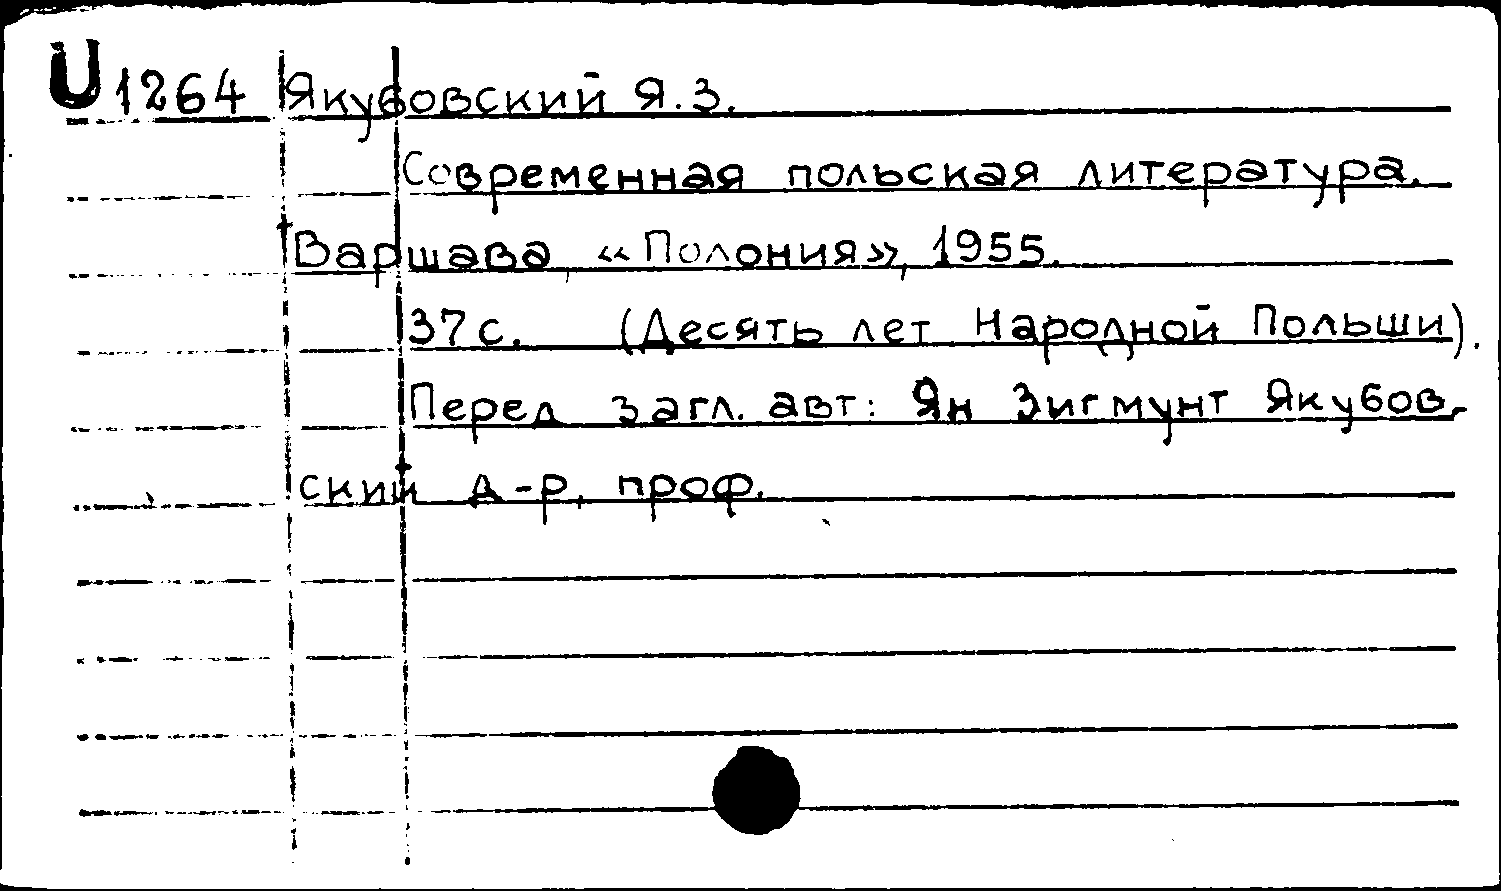 U 1264 Якубовский Я.З.
Современная польская литература.
Варшава, «Полония», 1955.
37с. (Десять лет Народной Польши).
Перед загл. авт: Ян Зигмунт Якубов-
ский д-р, проф.